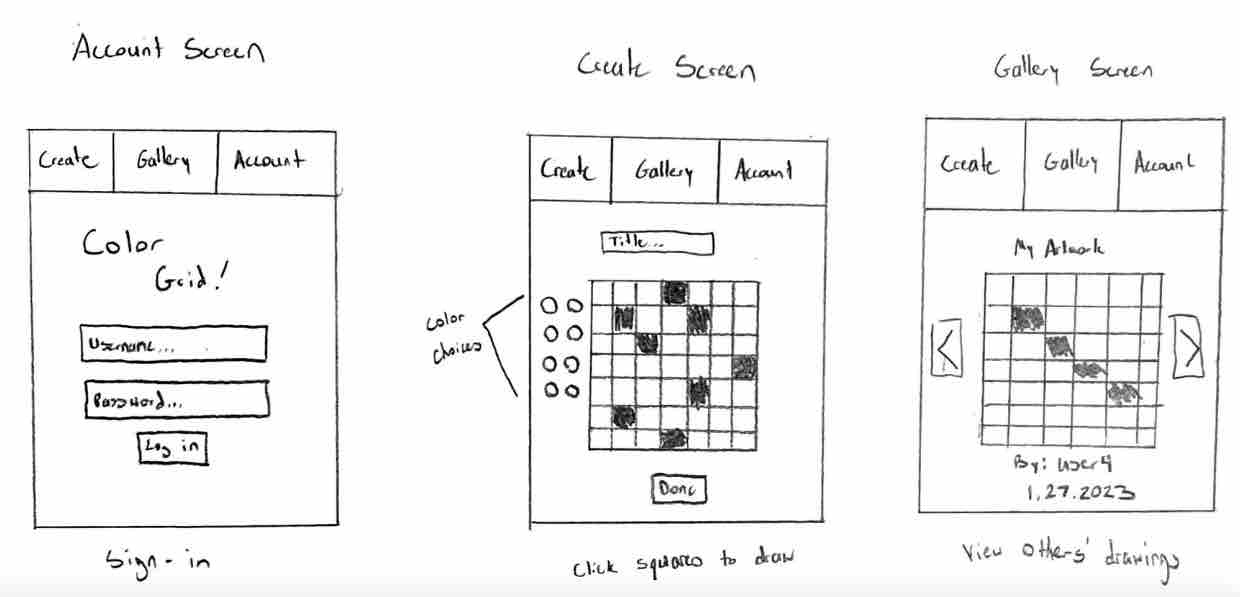 Account Screen
Create Gallery Account
Color
Grid!
Username...
Password...
Log in
Sign-in
Create Screen
Create Gallery Account
Title...
color
choices
Done
Click squares to draw
Gallery Screen
Create Gallery Account
My Artwork
<
>
By: User4
1.27.2023
View others' drawings